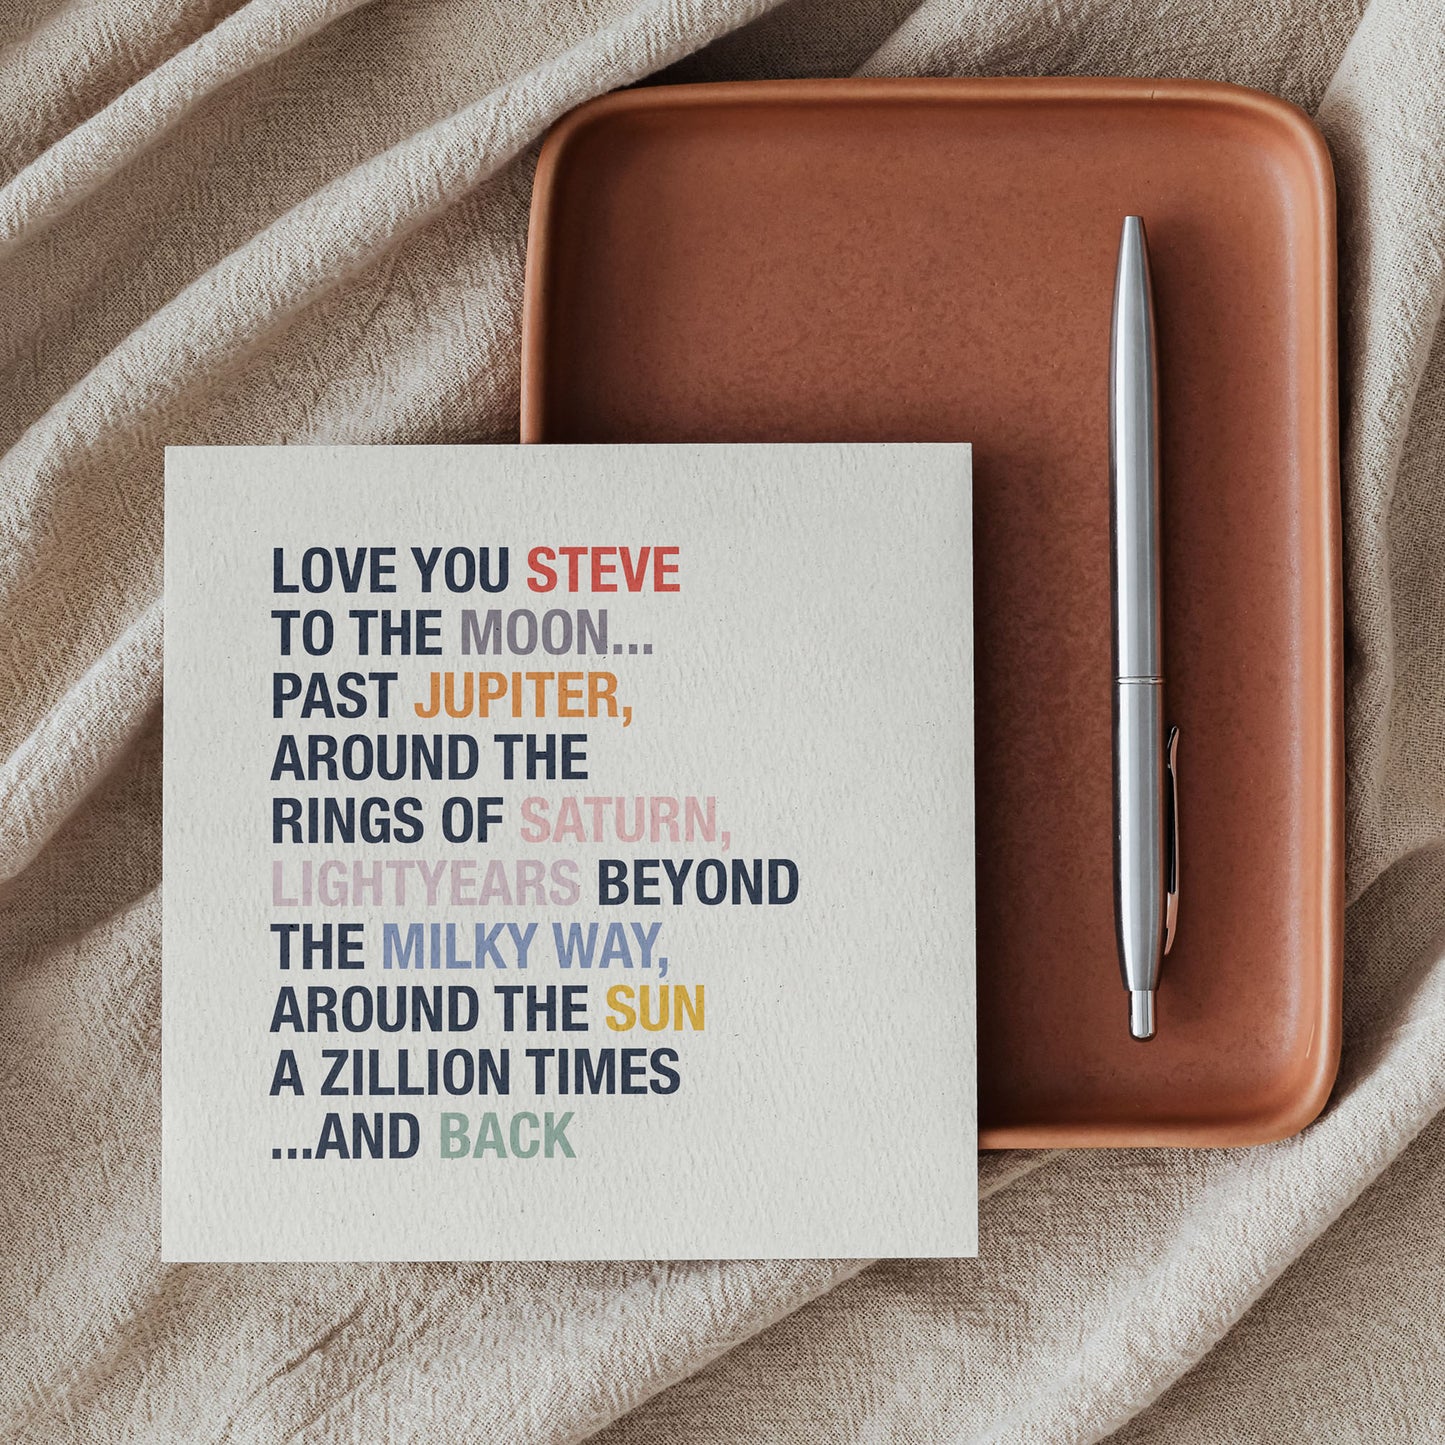 LOVE YOU STEVE
TO THE MOON...
PAST JUPITER,
AROUND THE
RINGS OF SATURN,
LIGHTYEARS BEYOND
THE MILKY WAY,
AROUND THE SUN
A ZILLION TIMES
...AND BACK